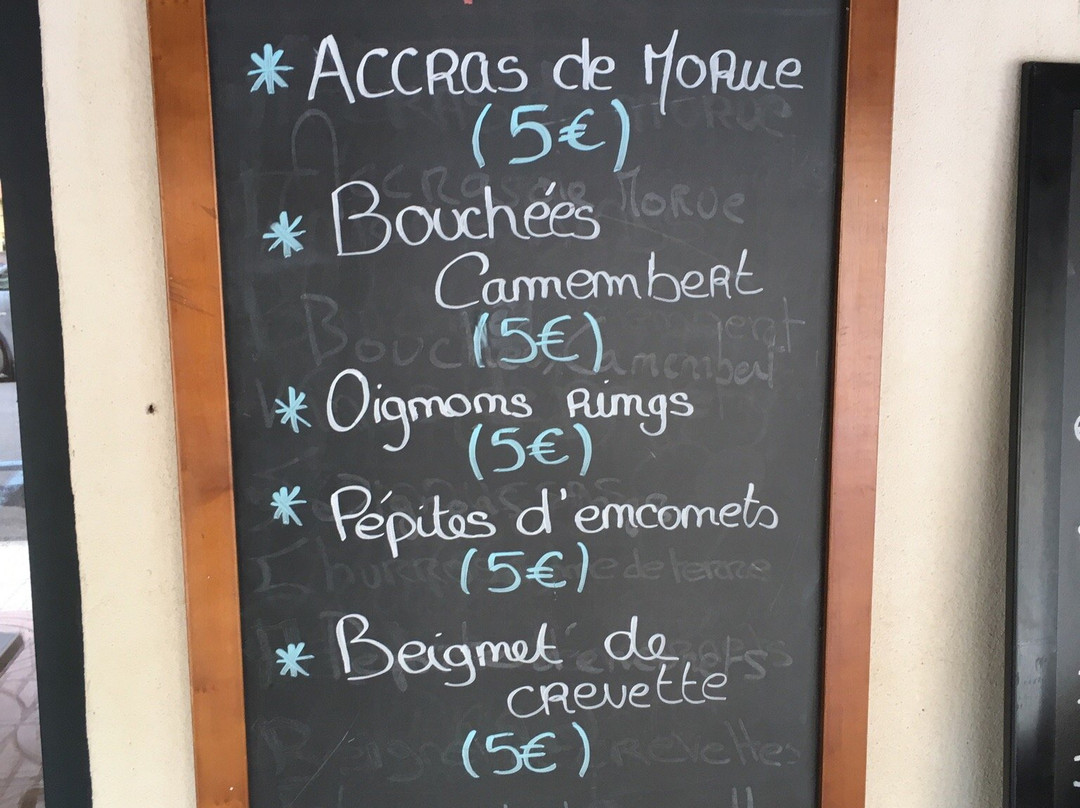 * Accras de Morue
(5€)
* Bouchées
Camembert
(5€)
* Oignons Rings
(5€)
* Pépites d'encornets
(5€)
* Beignet de
crevette
(5€)